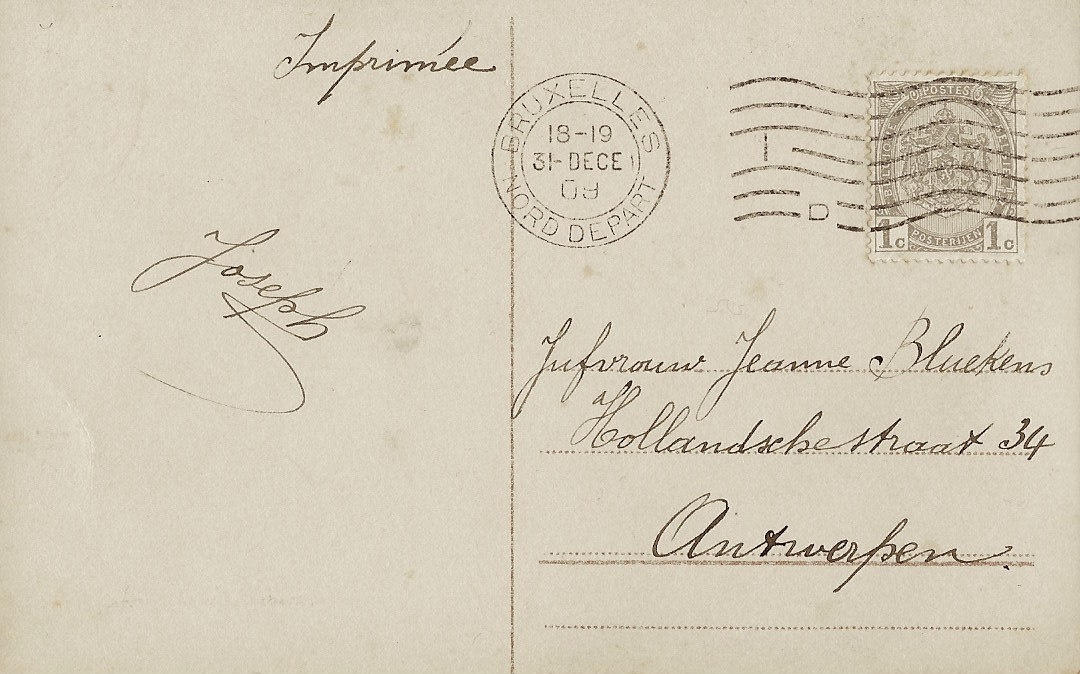 Imprimée
BRUXELLES
18-19
31-DECE
09
NORD DEPART
POSTES
1c POSTERIJEN 1c
D
Joseph
Jufvrouw Jeanne Bluekens
Hollandschestraat 34
Antwerpen.